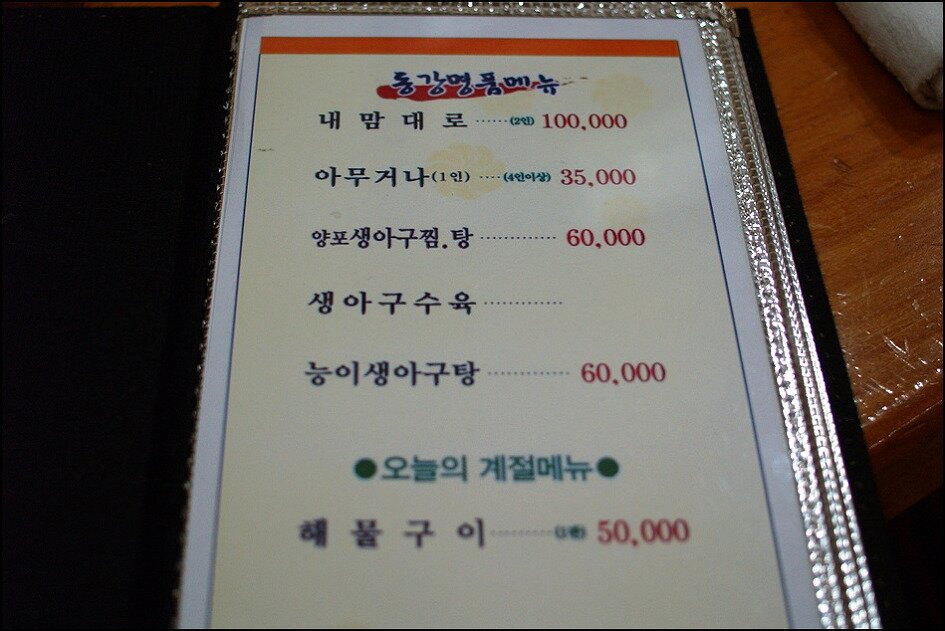 동강명품메뉴
내 맘 대 로 ······(2인) 100,000
아무거나(1인) ····(4인이상) 35,000
양포생아구찜.탕 ············ 60,000
생아구수육 ·············
능이생아구탕 ············· 60,000
●오늘의 계절메뉴●
해 물 구 이 ·········· 50,000